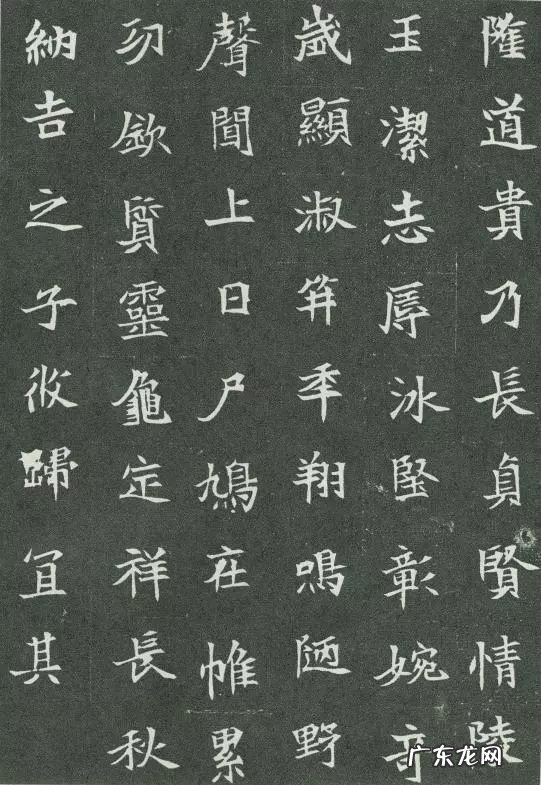 道貴乃長貞賢情陵
玉潔志辱冰堅彰婉竒
歲顯淑笄年翔鳴陋野
聲聞上日尸鳩在帷累
功欽質靈龜定祥長秋
納吉之子攸歸宜其
广东龙网